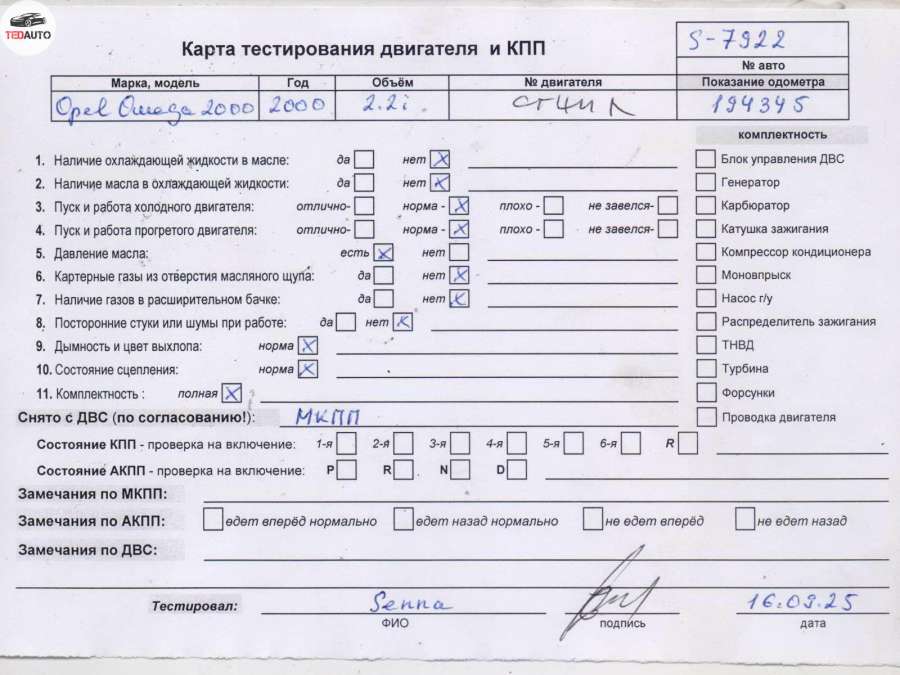 TEDAUTO
Карта тестирования двигателя и КПП
S-7922
№ авто
Марка, модель Год Объём № двигателя Показание одометра
Opel Omega 2000 2000 2.2i. 194345
комплектность
1. Наличие охлаждающей жидкости в масле: да нет X Блок управления ДВС
2. Наличие масла в охлаждающей жидкости: да нет X Генератор
3. Пуск и работа холодного двигателя: отлично- норма - X плохо - не завелся- Карбюратор
4. Пуск и работа прогретого двигателя: отлично- норма - X плохо - не завелся- Катушка зажигания
5. Давление масла: есть X нет Компрессор кондиционера
6. Картерные газы из отверстия масляного щупа: да нет X Моновпрыск
7. Наличие газов в расширительном бачке: да нет X Насос г/у
8. Посторонние стуки или шумы при работе: да нет X Распределитель зажигания
9. Дымность и цвет выхлопа: норма X ТНВД
10. Состояние сцепления: норма X Турбина
11. Комплектность : полная X Форсунки
Снято с ДВС (по согласованию!): МКПП Проводка двигателя
Состояние КПП - проверка на включение: 1-я 2-я 3-я 4-я 5-я 6-я R
Состояние АКПП - проверка на включение: P R N D
Замечания по МКПП:
Замечания по АКПП: едет вперёд нормально едет назад нормально не едет вперёд не едет назад
Замечания по ДВС:
Тестировал: Senna 16.09.25
ФИО подпись дата